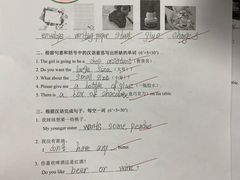 envelope writing paper stamp glue change
二、根据句意和括号中的汉语意思写出所缺的单词 (6'×5=30')
1. The girl is going to be a shop assistant
2. Do you want the large size (大号)?
3. What about the small size
4. Please give me a bottle of glue (一瓶胶水).
5. There is a box of chocolate (巧克力) on the table.
三、根据汉语完成句子, 每空一词 (6'×5=30')
1. 我妹妹想要一些桃子。
My younger sister wants some peaches
2. 我没有
I don't have any
3. 你喜欢啤酒还是红酒?
Do you like bear or wine ?